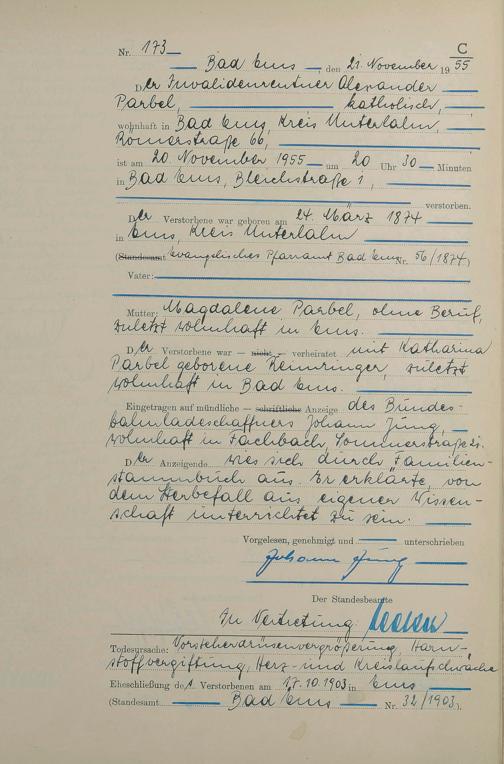 C
Nr. 173
Bad Ems, den 21. November 1955
Der Invalidenrentner Alexander
Parbel, katholisch,
wohnhaft in Bad Ems, Kreis Unterlahn,
Römerstraße 66,
ist am 20. November 1955 um 20 Uhr 30 Minuten
in Bad Ems, Bleichstraße 1,
verstorben.
Der Verstorbene war geboren am 24. März 1874
in Ems, Kreis Unterlahn
(Standesamt Evangelisches Pfarramt Bad Ems Nr. 56/1874)
Vater:
Mutter: Magdalene Parbel, ohne Beruf,
zuletzt wohnhaft in Ems.
Der Verstorbene war – nicht – verheiratet mit Katharina
Parbel geborene Remringer, zuletzt
wohnhaft in Bad Ems.
Eingetragen auf mündliche – schriftliche Anzeige des Bundes-
bahnladeschaffners Johann Jung,
wohnhaft in Fachbach, Sommerstraße 21.
Der Anzeigende wies sich durch Familien-
stammbuch aus. Er erklärte, von
dem Sterbefall aus eigener Wissen-
schaft unterrichtet zu sein.
Vorgelesen, genehmigt und unterschrieben
Johann Jung
Der Standesbeamte
In Vertretung:
Todesursache: Vorsteherdrüsenvergrößerung, Harn-
stoffvergiftung, Herz- und Kreislaufschwäche
Eheschließung des Verstorbenen am 17.10.1903 in Ems
(Standesamt Bad Ems Nr. 32/1903).